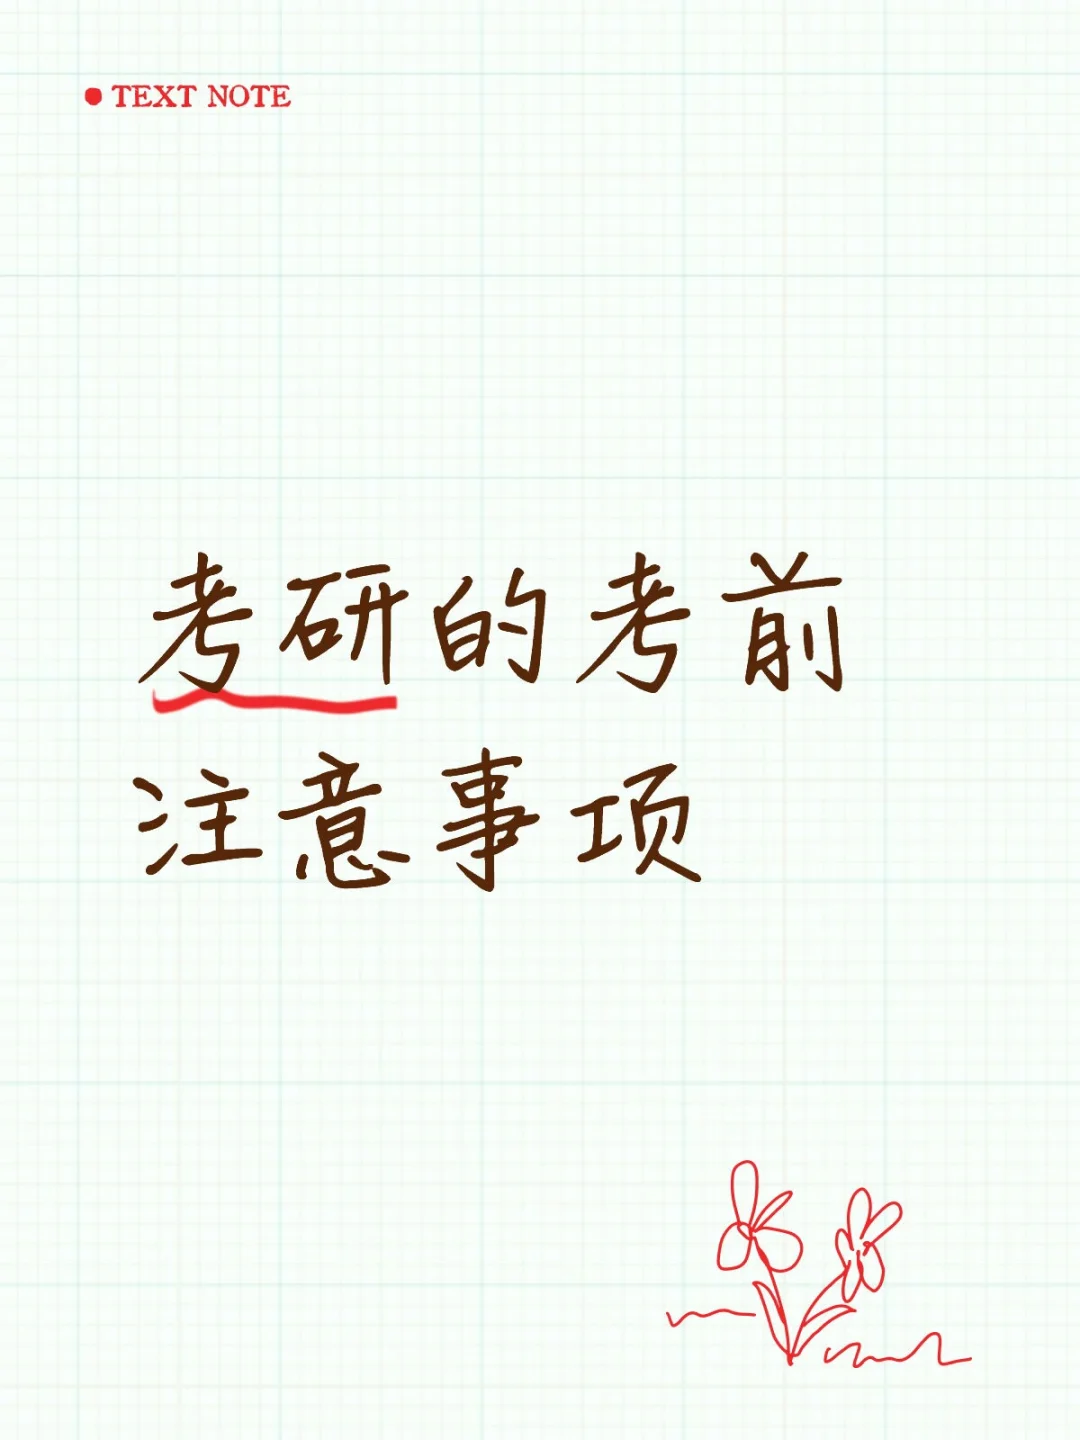 TEXT NOTE
考研的考前
注意事项